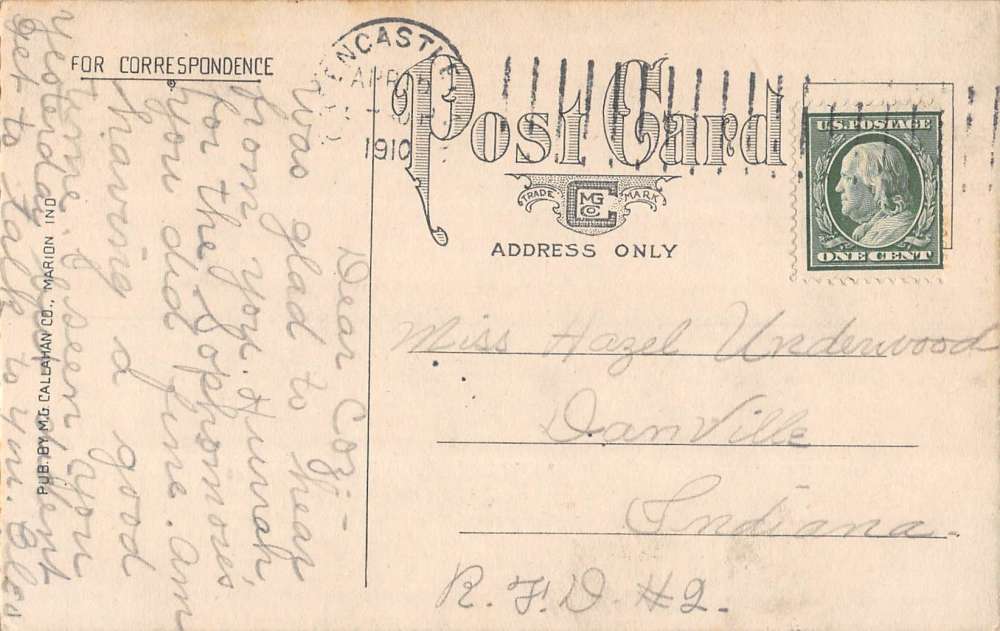 FOR CORRESPONDENCE
ENCASTLE
APR 15
1910
Post Card
TRADE MARK
MG
CO
ADDRESS ONLY
U.S. POSTAGE
ONE CENT
Miss Hazel Underwood
Danville
Indiana.
R. F. D. #2.
Dear Coz-
was glad to hear
from you. Hurrah,
for the Sophomores.
you did fine. Am
having a good
time. I seen you
yesterday but
get to talk to you.
PUB. BY M.G. CALLAHAN CO., MARION IND